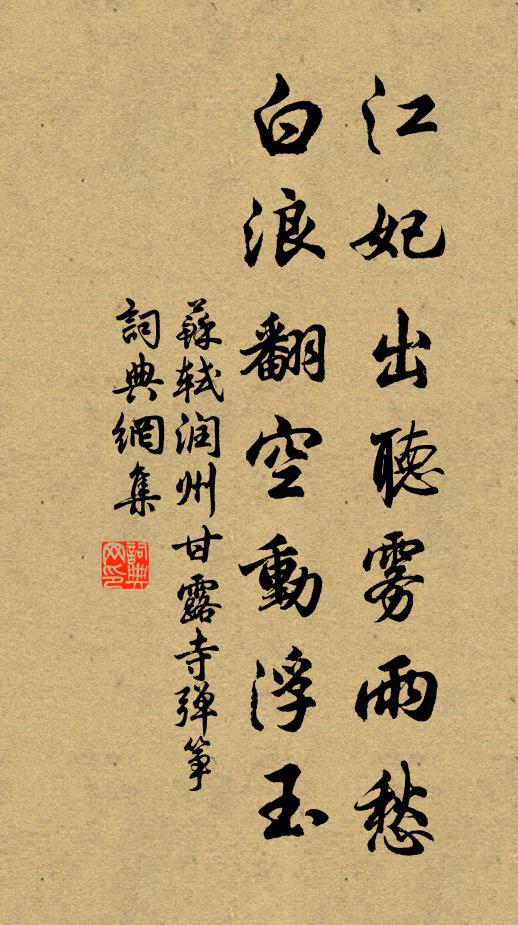 江妃出聽雾雨愁
白浪翻空動浮玉
蘇軾润州甘露寺弹筝
詞典網集
詞典
网印